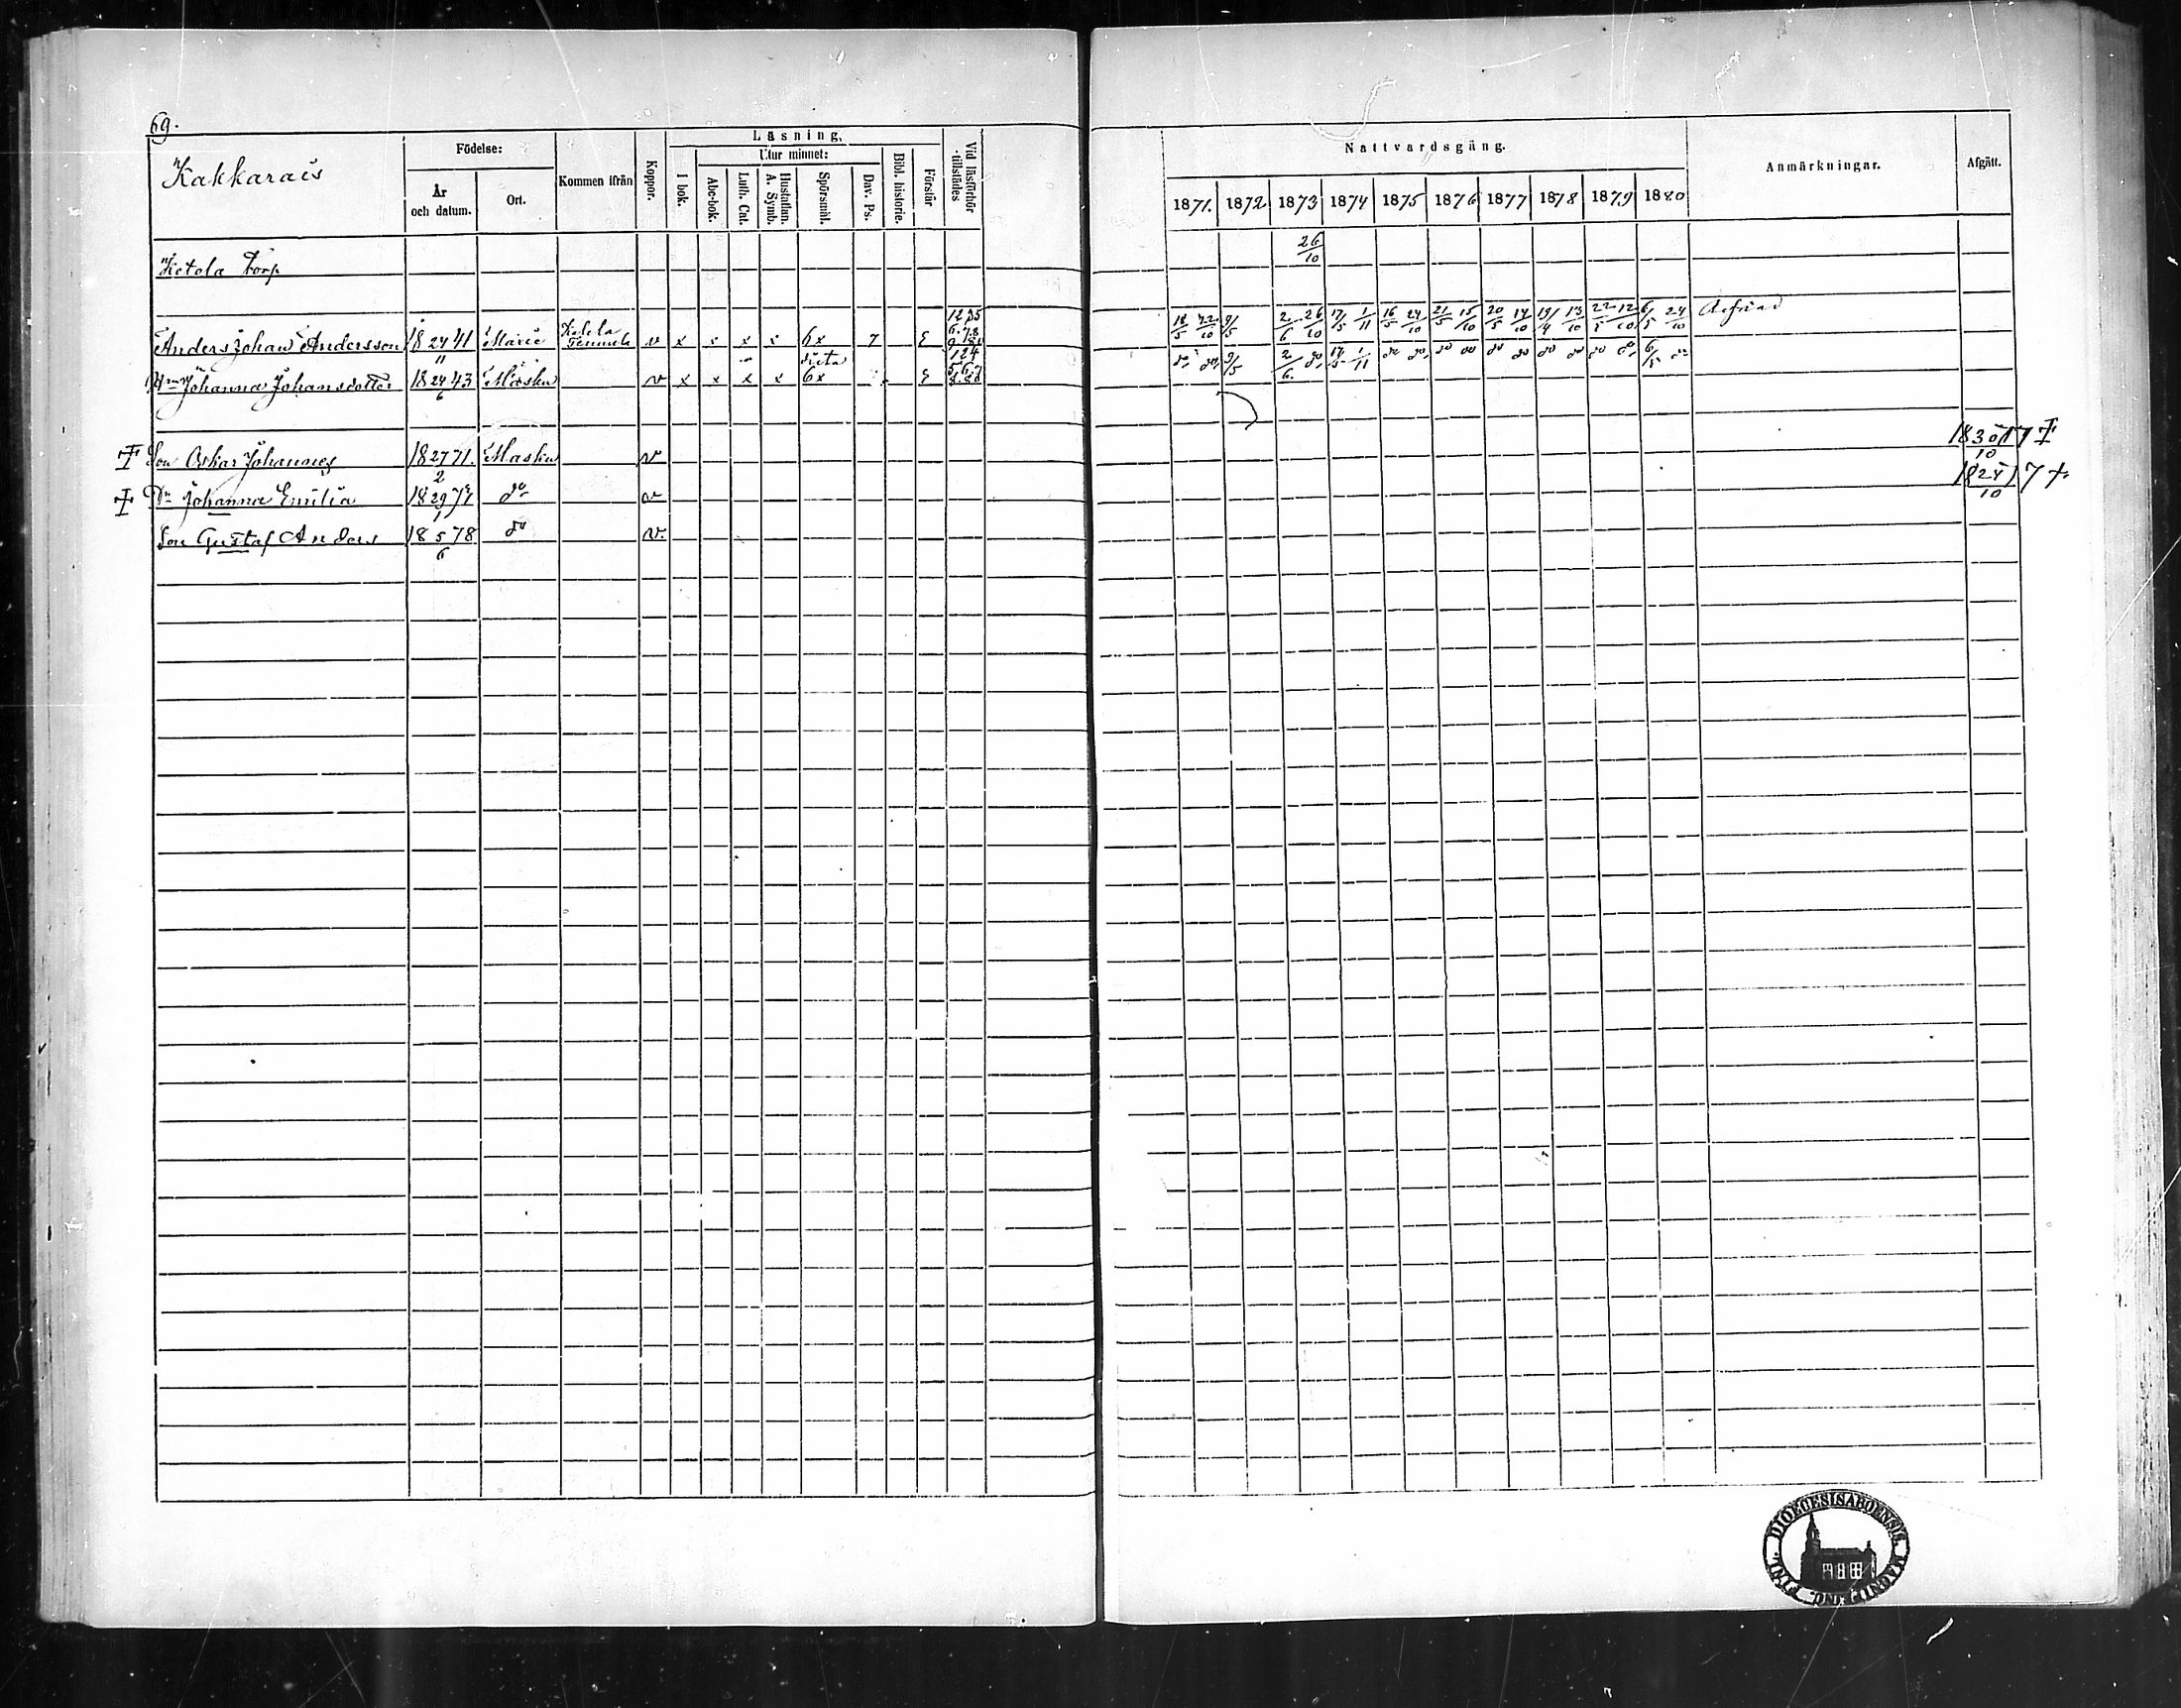 69.
Kakkarais
Födelse:
År och datum.
Ort.
Kommen ifrån
Koppor.
Läsning.
I bok.
Utur minnet:
Abc-bok.
Luth. Cat.
Hustaflan. A. Symb.
Spörsmål.
Dav. Ps.
Bibl. historie.
Förstår
Vid läsförhör tillstädes
Nattvardsgång.
1871. 1872 1873 1874 1875 1876 1877 1878 1879 1880
Anmärkningar.
Afgått.
Ketola Torp
26/10
Anders Johan Andersson 18 24/11 41 Marie Ketola v x x x x 6x 7
18/5 22/10 9/5 2/6 26/10 17/5 1/11 16/5 24/10 21/5 15/10 20/5 14/10 19/4 13/10 22/5 12/10 6/5 24/10
Johanna Johansdotter 18 24/6 43 Masku v x x x x 6x
do do 9/5 2/6 do 17/5 1/11 do do do do do do do do do do 6/5 do
Son Oskar Johannes 18 27/2 71. Masku v
18 30/10 77 ‡
Dr Johanna Emilia 18 29/1 77 do v
18 24/10 77 +
Son Gustaf Anders 18 5/6 78 do v.
DIOECESIS ABOENSIS MAGNI DUC. FINL.